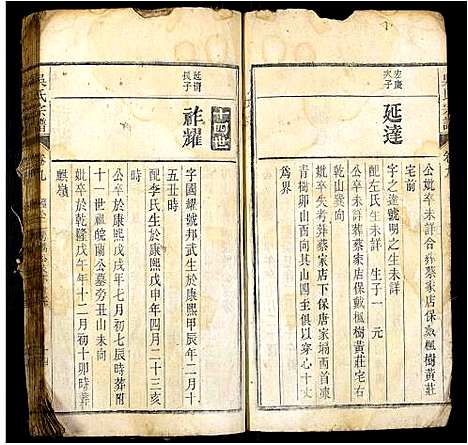 公妣卒未詳合葬蔡家店保戴楓樹黃莊
宅前
宏慶
次子
延達
字之達號明之生未詳
配左氏生未詳 生子一 元
公卒未詳葬蔡家店保戴楓樹黃莊宅右
乾山巽向
妣卒失考葬蔡家店下保唐家塌西首凍
青樹卯山酉向其山四具俱以穿心十丈
為界
吳氏宗譜
卷九
十四世
延
長子
祚耀
字國耀號邦武生於康熙甲辰年二月十
五丑時
配李氏生於康熙戊申年四月二十三亥
時
公卒於康熙戊戌年七月初七辰時葬附
十一世祖皖蘭公墓旁丑山未向
妣卒於乾隆戊午年十二月初十卯時葬
麒嶺